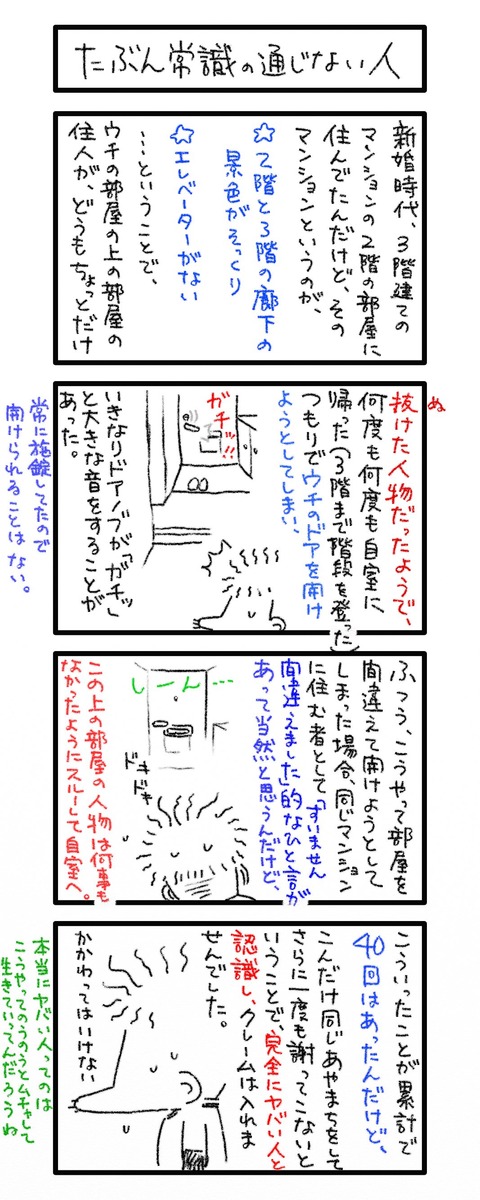 たぶん常識の通じない人
新婚時代、3階建ての
マンションの2階の部屋に
住んでたんだけど、その
マンションというのが、
☆2階と3階の廊下の
景色がそっくり
☆エレベーターがない
…ということで、
ウチの部屋の上の部屋の
住人が、どうもちょっとだけ
ぬ
抜けた人物だったようで、
何度も何度も自室に
帰った(3階まで階段を登った)
つもりでウチのドアを開け
ようとしてしまい、
ガチッ!!
いきなりドアノブが「ガチッ」
と大きな音をすることが
あった。
常に施錠してたので
開けられることはない。
ふつう、こうやって部屋を
間違えて開けようとして
しまった場合、同じマンション
に住む者として「すいません
間違えました」的なひと言が
あって当然と思うんだけど、
しーん…
ドキドキ
この上の部屋の人物は何事も
なかったようにスルーして自室へ。
こういったことが累計で
40回はあったんだけど、
こんだけ同じあやまちをして
さらに一度も謝ってこないと
いうことで、完全にヤバい人と
認識し、クレームは入れま
せんでした。
かかわってはいけない
本当にヤバい人ってのは
こうやってのうのうとムチャして
生きていってんだろうね